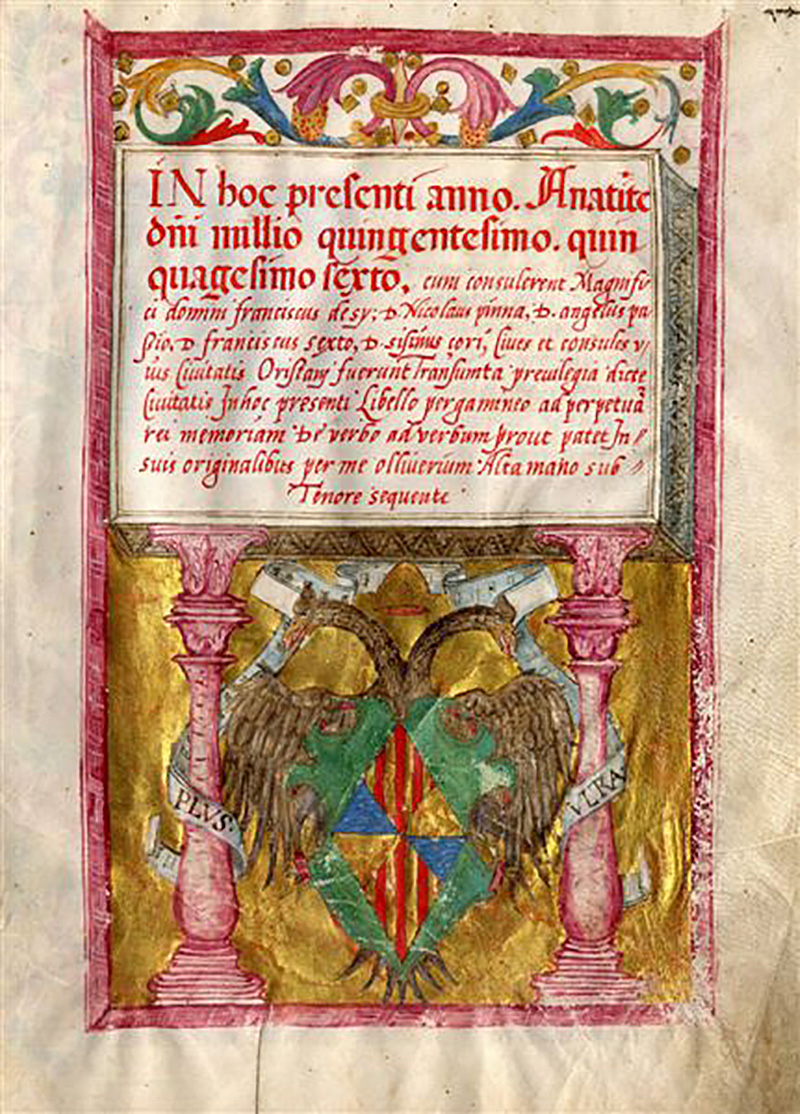 IN hoc presenti anno. Anatite
dni millio quingentesimo. quin
quagesimo sexto, cum consulerent Magnifi
ci domini franciscus desy; D. Nicolaus pinna, D. angelus pa
sio, D franciscus sexto, D. sisinus cori, cives et consules v/
ius civitatis Oristani fuerunt Transumta previlegia dicte
Civitatis Inhoc presenti Libello pergamineo ad perpetuã
rei memoriam De verbo ad verbum prout patet In//
suis originalibus per me olliverium Alta mano sub //
Tenore sequente
PLVS.
VLRA